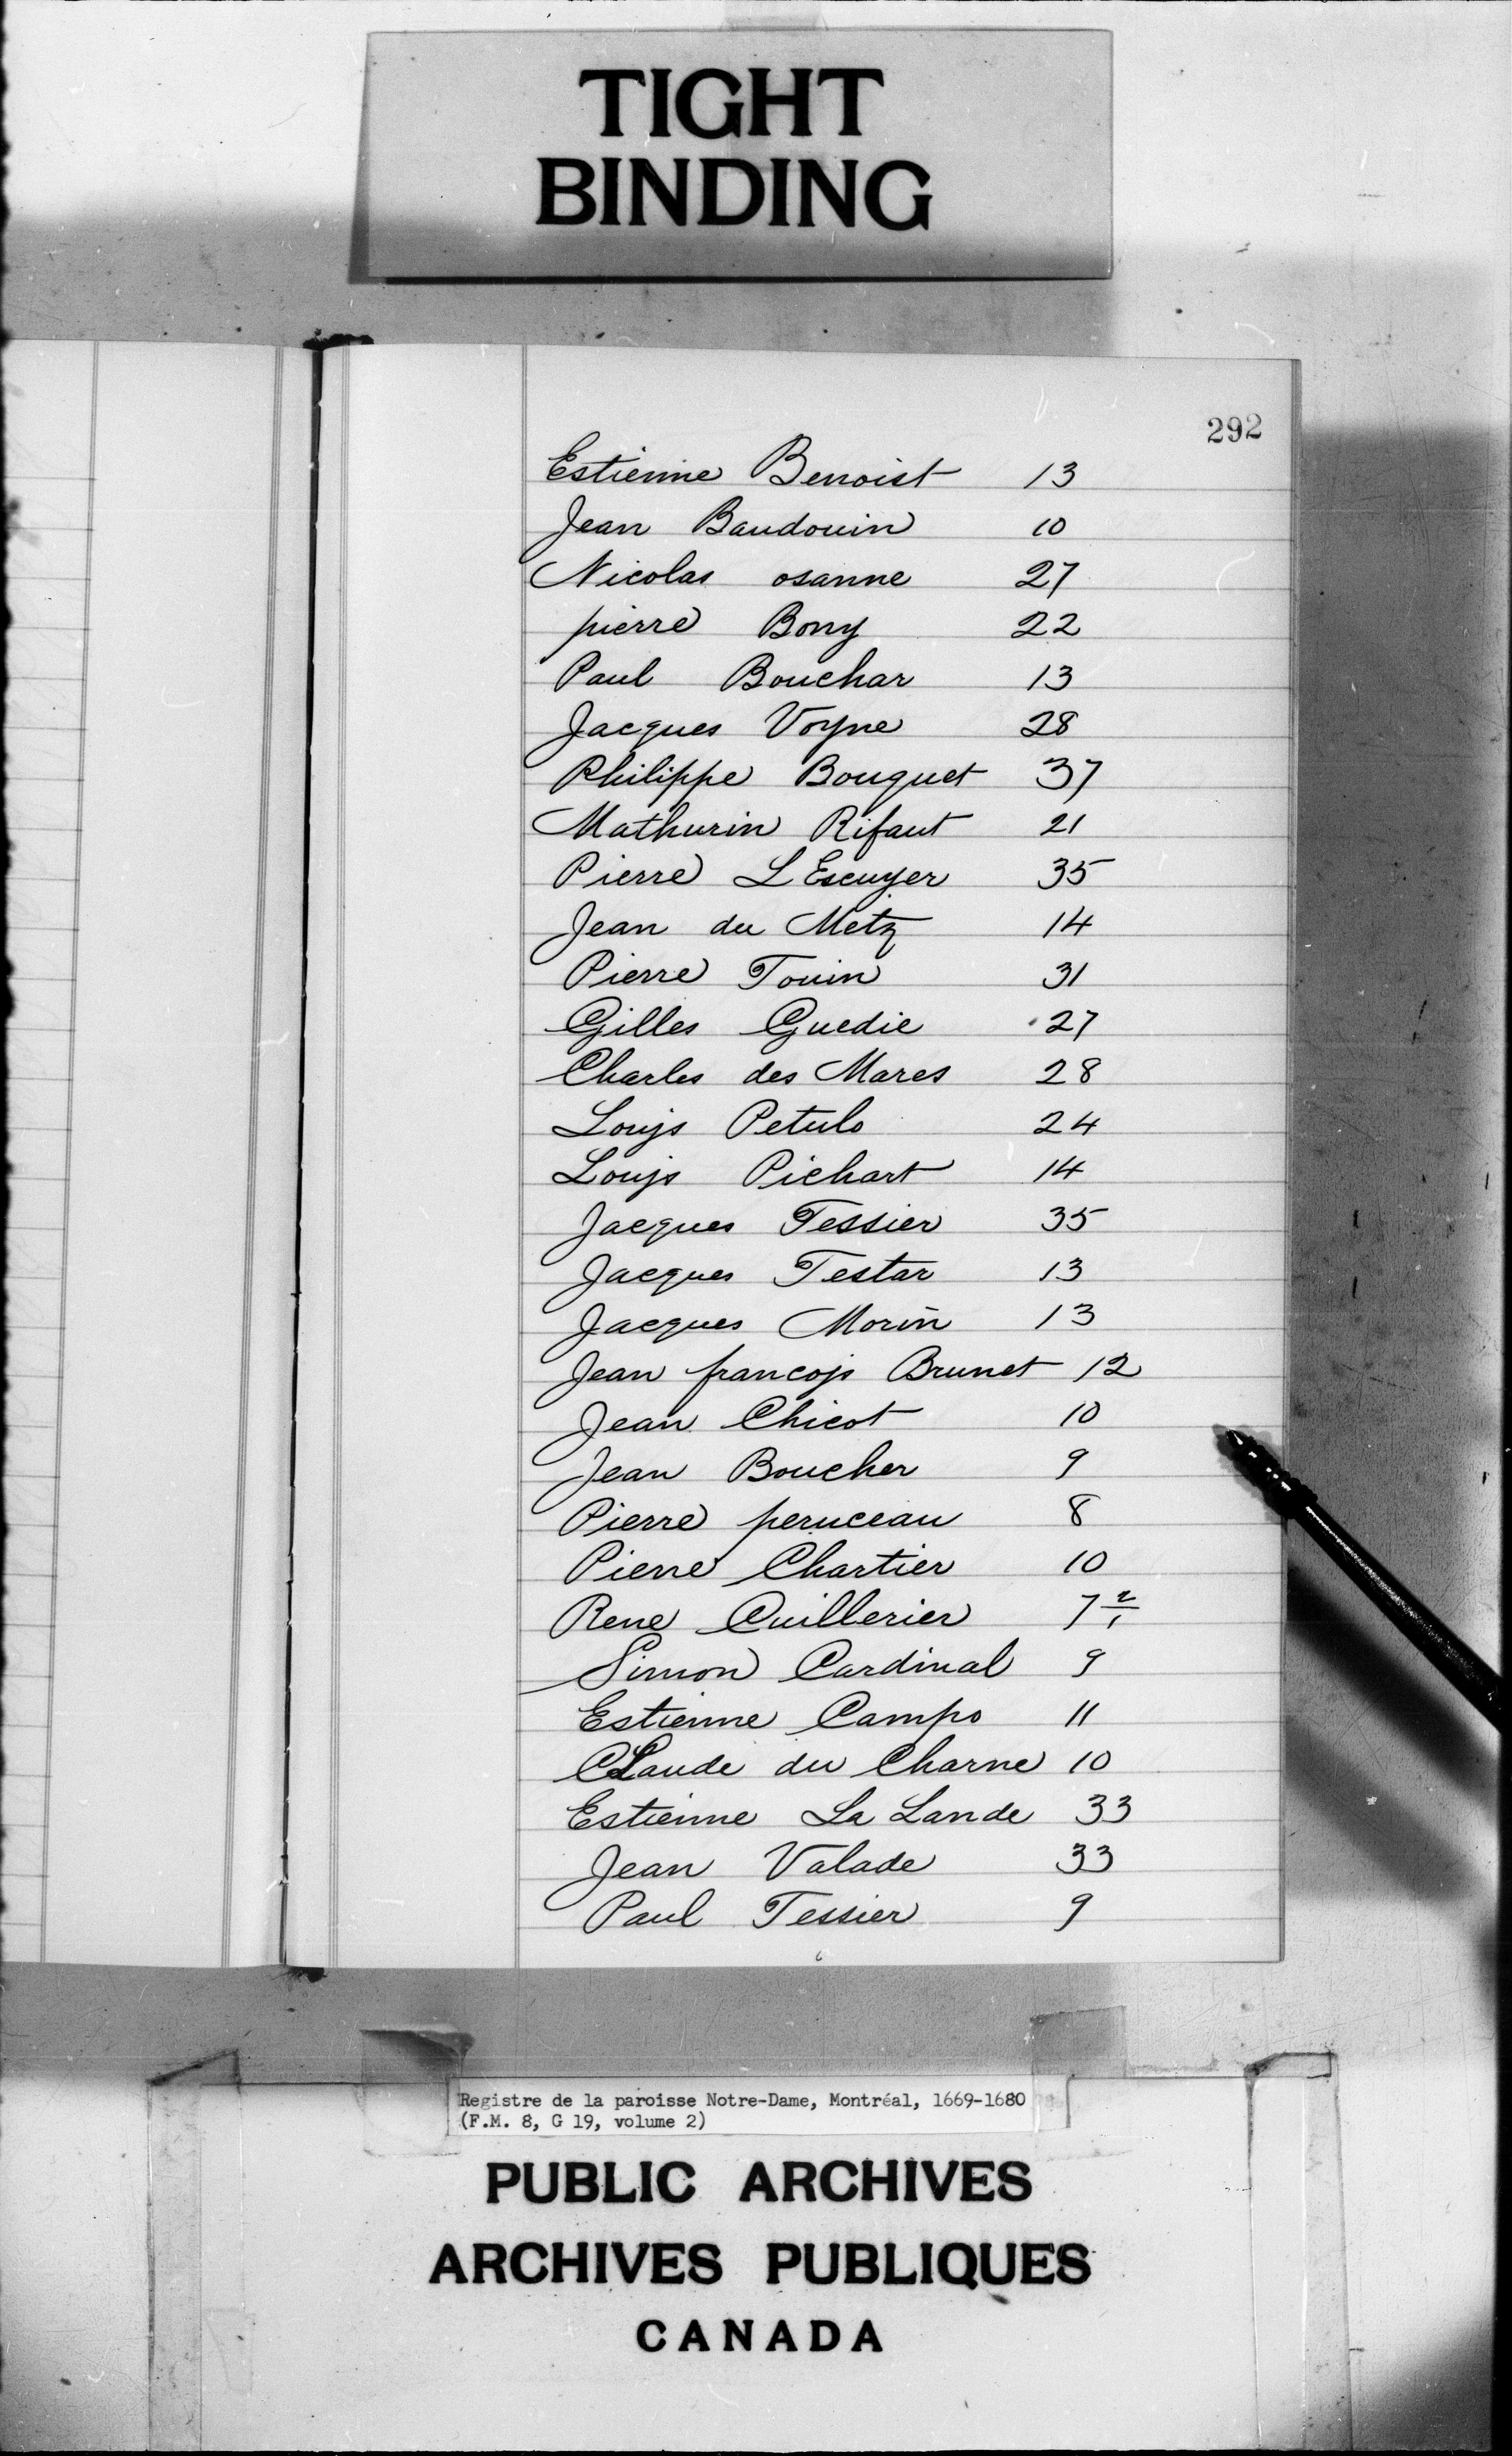 TIGHT
BINDING
292
Estienne Benoist 13
Jean Baudouin 10
Nicolas osanne 27
pierre Bony 22
Paul Bouchar 13
Jacques Voyne 28
Philippe Bouquet 37
Mathurin Rifaut 21
Pierre L Escuyer 35
Jean du Metz 14
Pierre Touin 31
Gilles Guedie 27
Charles des Mares 28
Louys Petulo 24
Louys Pichart 14
Jacques Tessier 35
Jacques Testar 13
Jacques Morin 13
Jean francoys Brunet 12
Jean Chicot 10
Jean Boucher 9
Pierre peruceau 8
Pierre Chartier 10
Rene Cuillerier 7 2/1
Simon Cardinal 9
Estienne Campo 11
CLaude du Charne 10
Estienne La Lande 33
Jean Valade 33
Paul Tessier 9
Registre de la paroisse Notre-Dame, Montréal, 1669-1680
(F.M. 8, G 19, volume 2)
PUBLIC ARCHIVES
ARCHIVES PUBLIQUES
CANADA